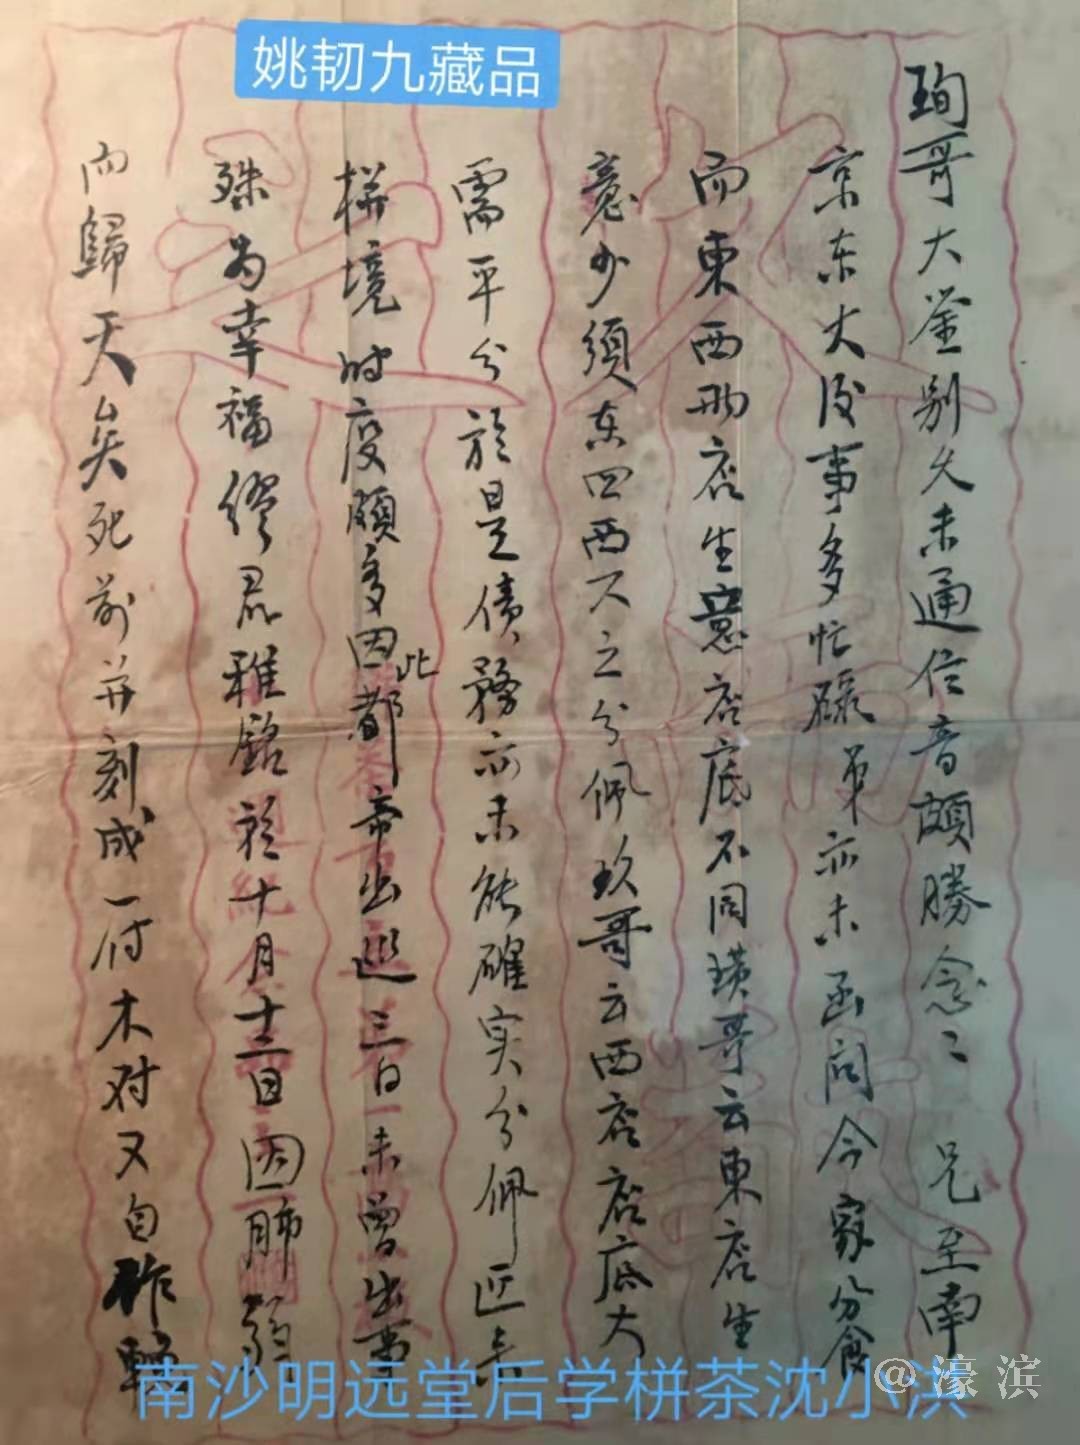 姚韧九藏品
珣哥大鉴别久未通信音颇勝念々 兄至南
京东大后事多忙碌弟亦未函问今家分食
而東西兩店生意店底不同璜哥云東店生
意少須东四西六之分佩玖哥云西店店底大
需平分於是债務亦未能確实分佩近长
栟境时疫颇多因此都帝出巡三日未曾出事
殊为幸福缪君雅銘於十月十三日因肺弱
而歸天矣死前并刻成一付木对又自作輓
南沙明远堂后学栟茶沈小洪
@濠滨